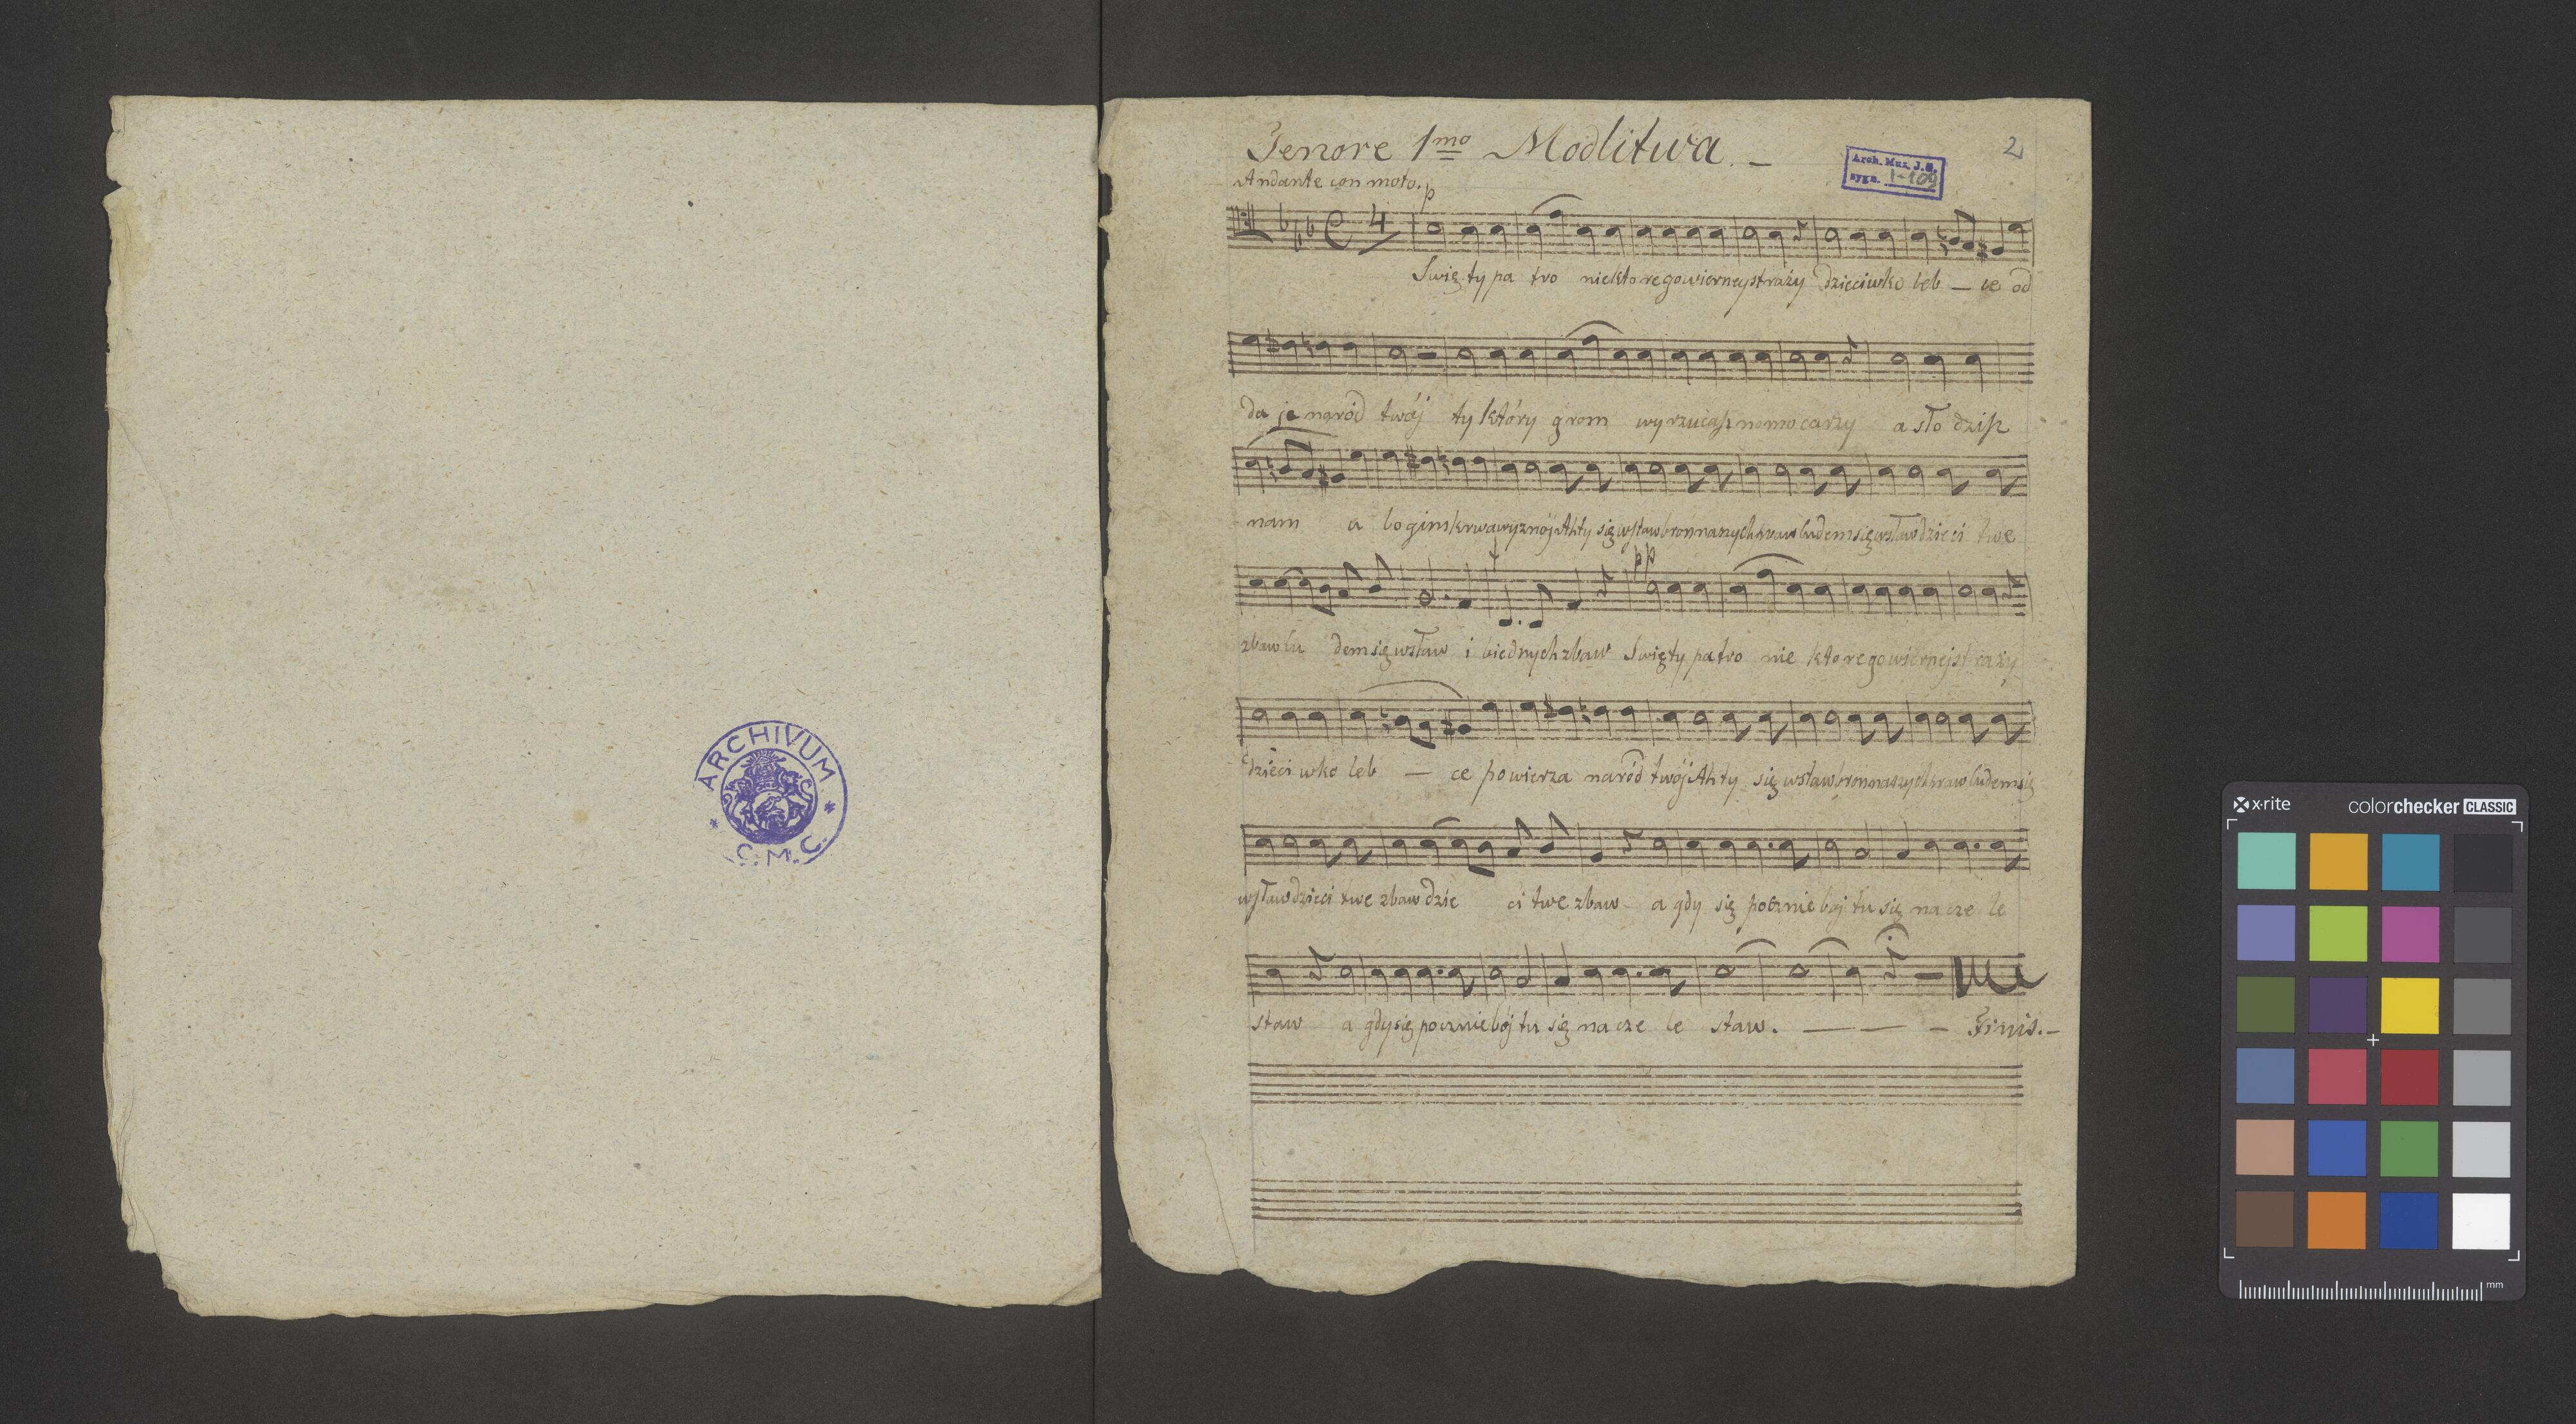 ARCHIVUM
* C. M. C. *
Tenore 1mo Modlitwa. –
2
Arch. Muz. J. G.
sygn. I-109
Andante con moto.
p
4
Święty pa tro niektoregowierneystraży dzieciwko leb – ce od
da je naród twój ty który grom wyrzucasz nomocarzy a sło dzisz
nam u bogimkrwawyznój Ahty sięwstawbronnaszychprawludemsięwstawdzieci twe
pp
zbawlu demsięwstaw i biednychzbaw Święty patro nie ktoregowiernejstraży
dzieci wko leb – ce powierza naród twój Ahty się wstawbronnaszychprawludemsię
wstawdzieci twe zbaw dzie ci twe zbaw a gdy się pocznie bój tu się na cze le
staw a gdysiępoczniebój tu się na cze le staw. – – – Finis. –
x-rite
colorchecker CLASSIC
mm